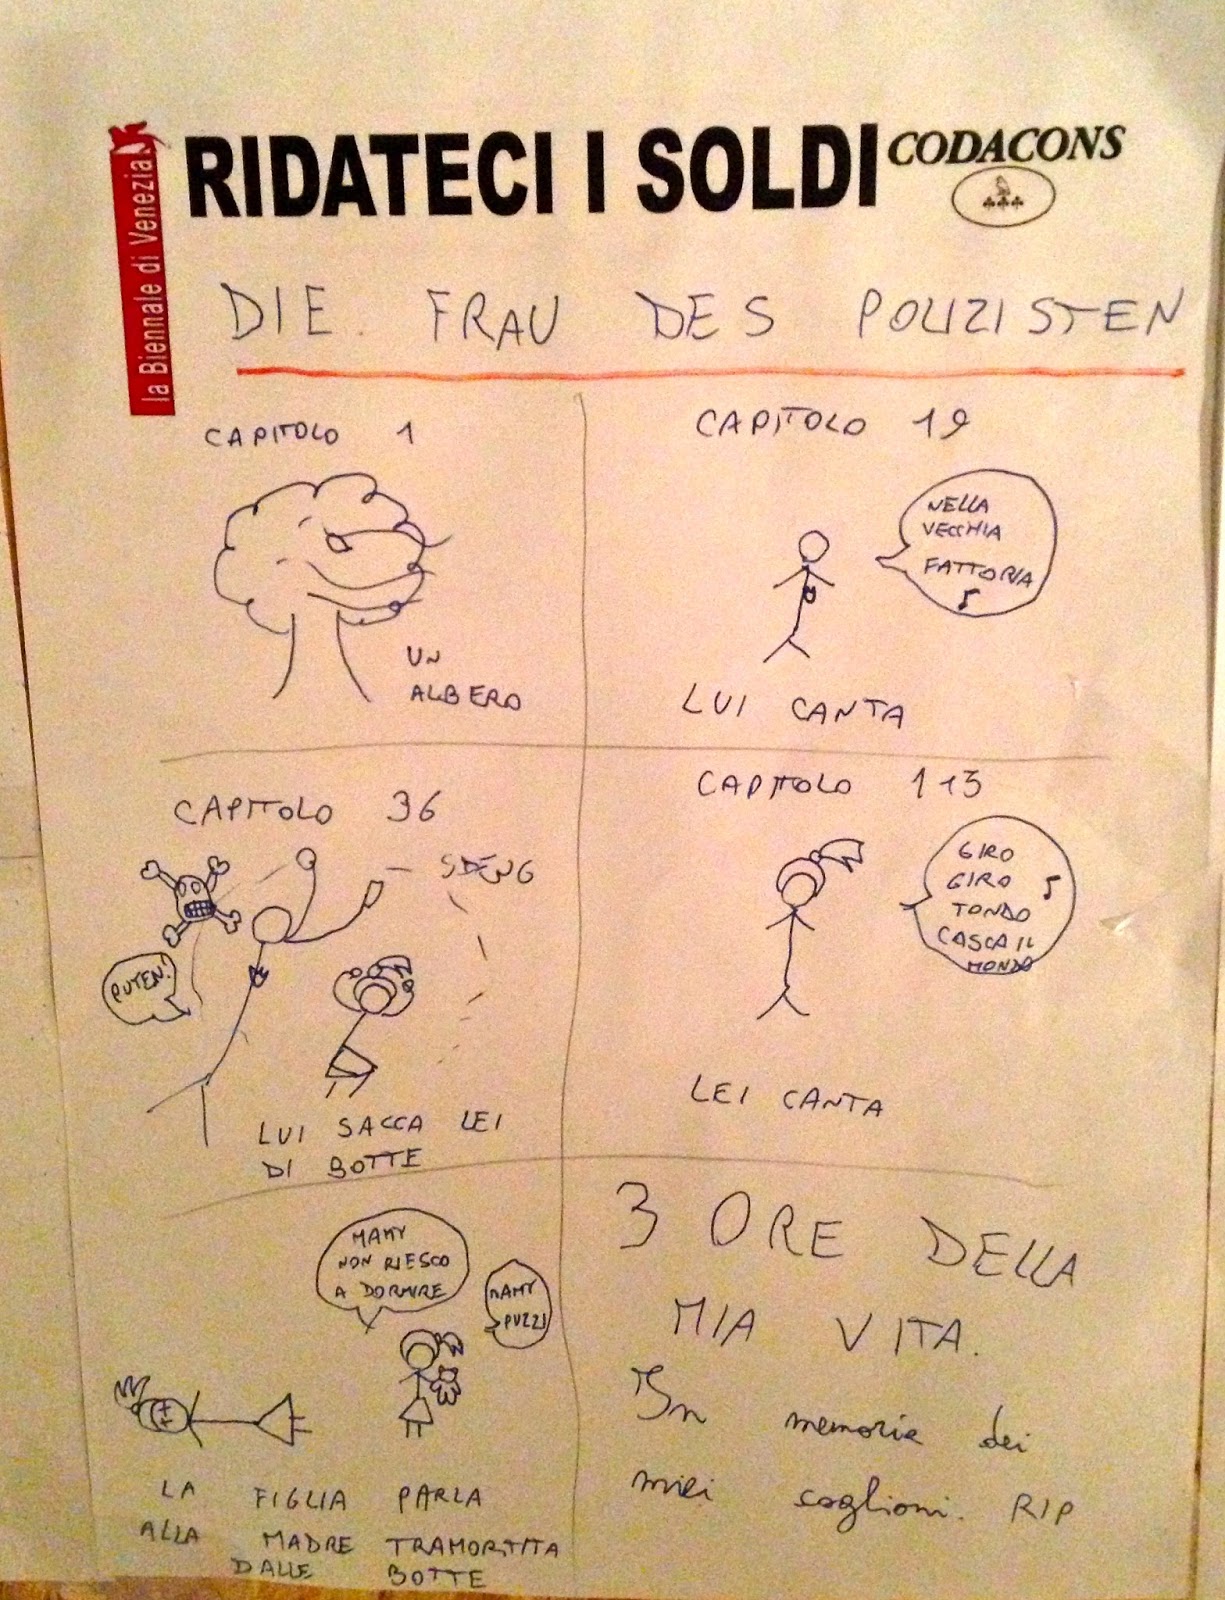 la Biennale di Venezia
RIDATECI I SOLDI
CODACONS
DIE FRAU DES POLIZISTEN
CAPITOLO 1
UN
ALBERO
CAPITOLO 19
NELLA
VECCHIA
FATTORIA
LUI CANTA
CAPITOLO 36
SDENG
PUTEN!
LUI SACCA LEI
DI BOTTE
CAPITOLO 113
GIRO
GIRO
TONDO
CASCA IL
MONDO
LEI CANTA
MAMY
NON RIESCO
A DORMIRE
MAMY
PUZZI
LA FIGLIA PARLA
ALLA MADRE TRAMORTITA
DALLE BOTTE
3 ORE DELLA
MIA VITA.
In memoria dei
miei coglioni. RIP